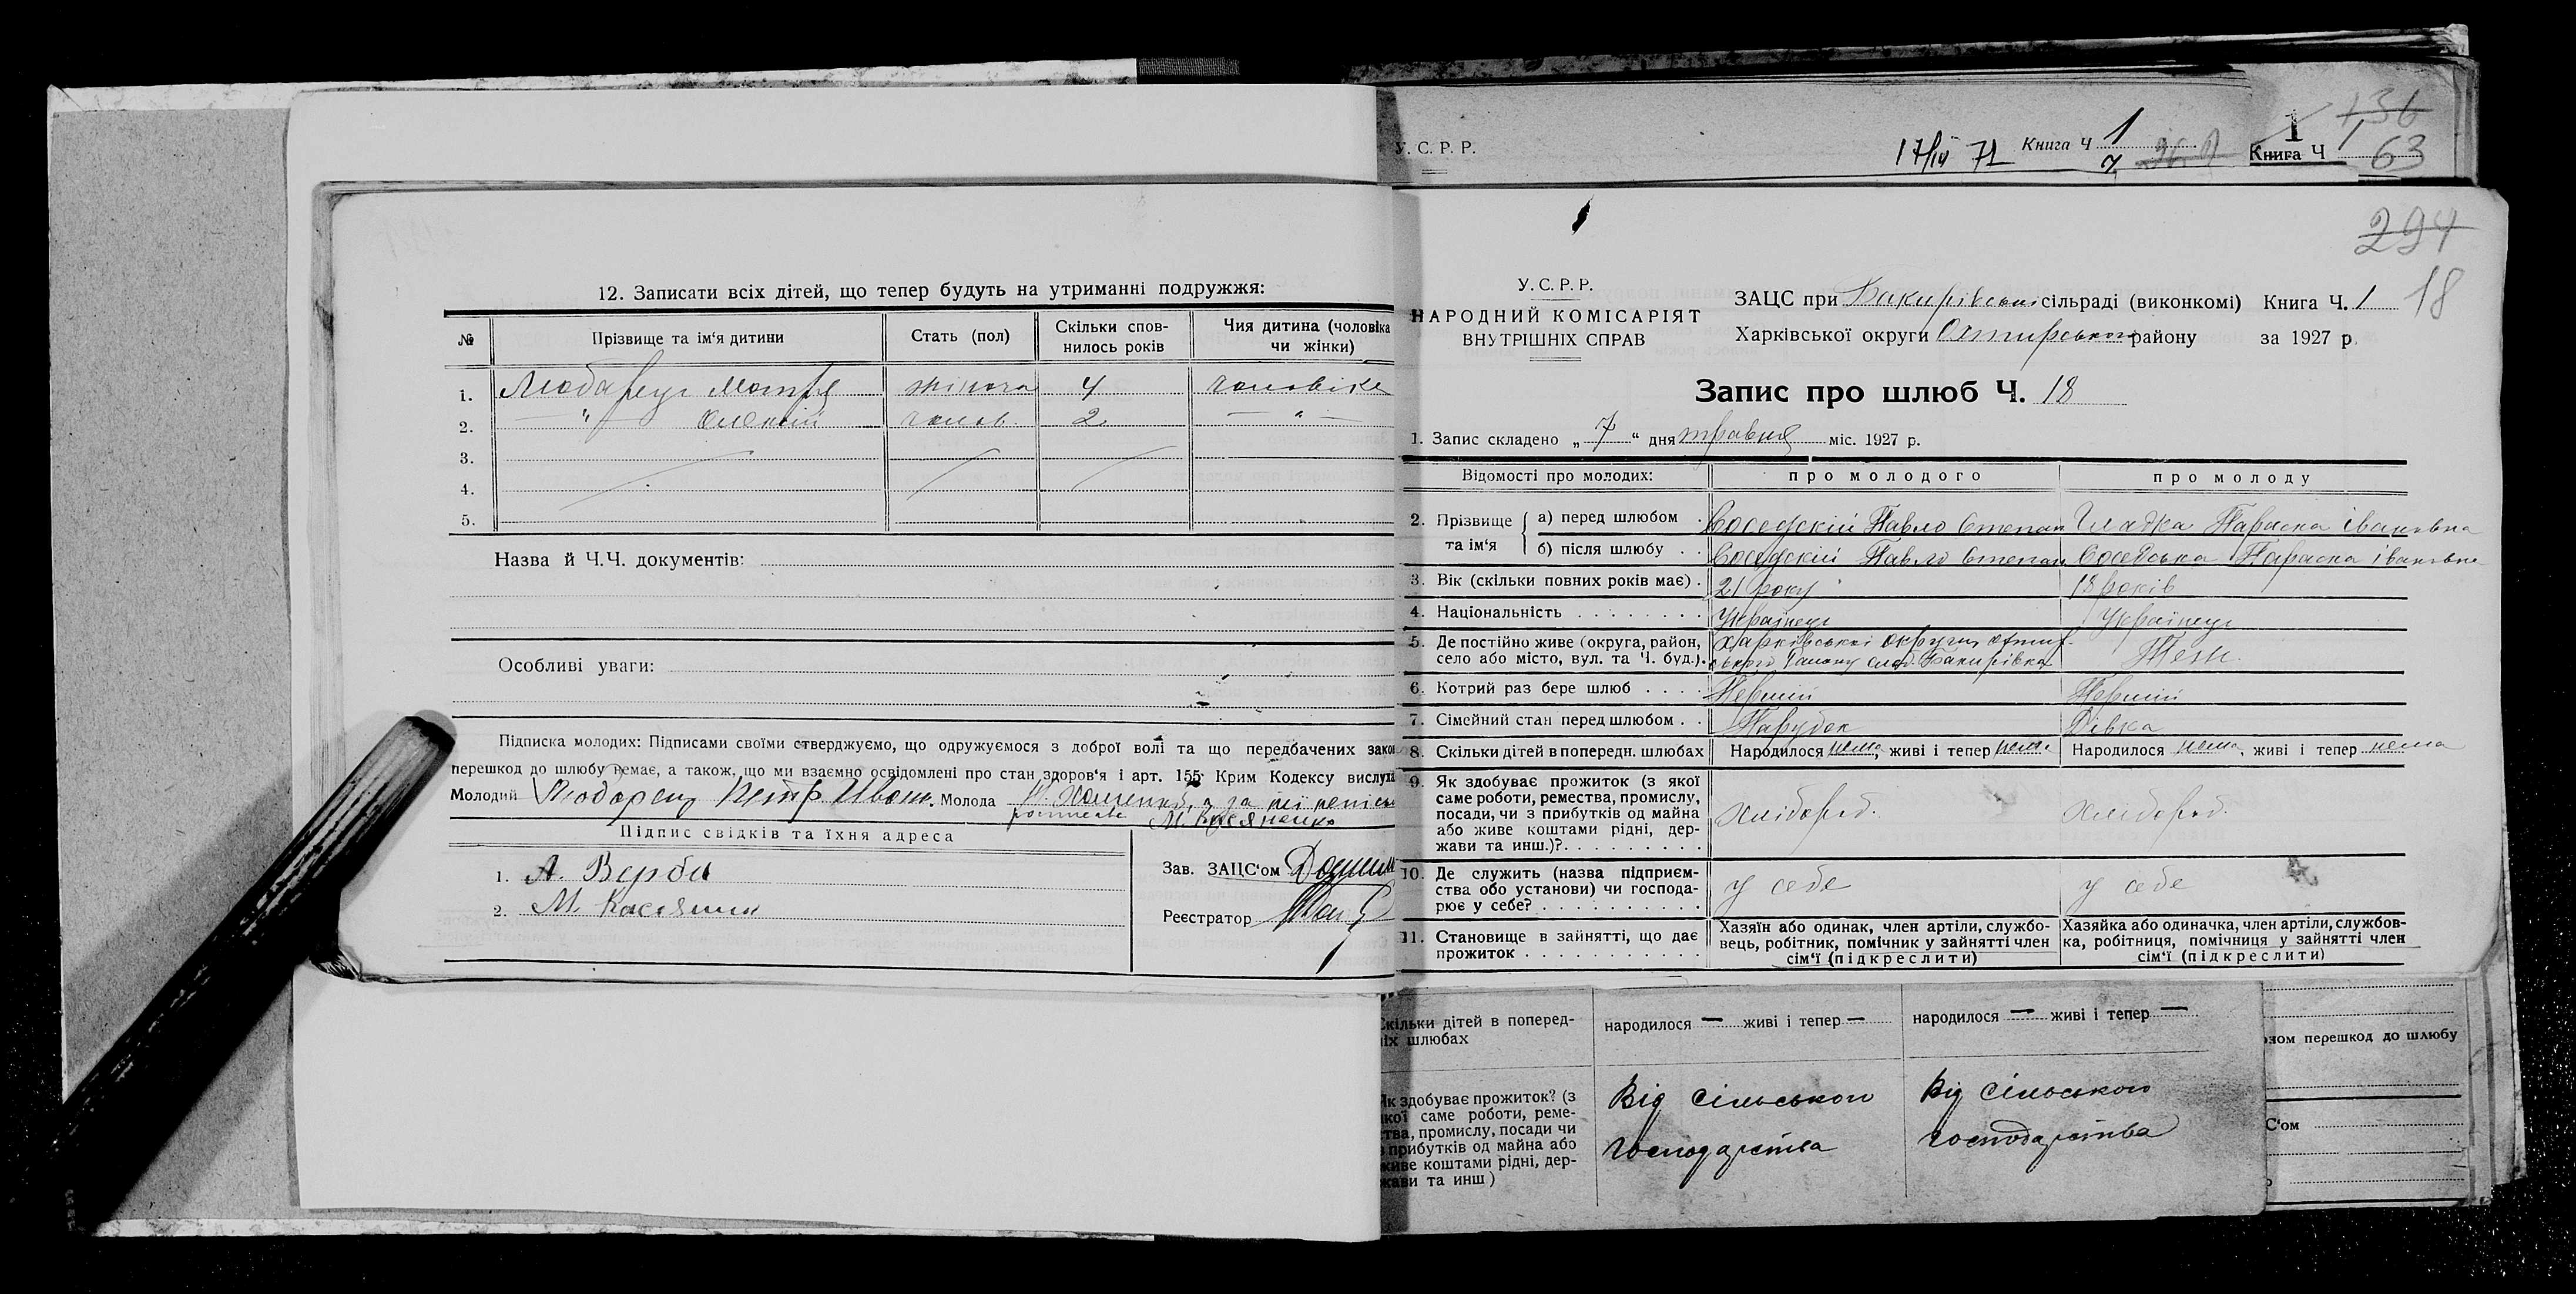 12. Записати всіх дітей, що тепер будуть на утриманні подружжя:
№ Прізвище та ім‘я дитини Стать (пол) Скільки спов-нилось років Чия дитина (чоловіка чи жінки)
1. Любарець Мотря жіноча 4 чоловіка
2. — " — Олексій чолов. 2 — " —
3.
4.
5.
Назва й Ч.Ч. документів:
Особливі уваги:
Підписка молодих: Підписами своїми стверджуємо, що одружуємося з доброї волі та що передбачених зако
перешкод до шлюбу немає, а також, що ми взаємно освідомлені про стан здоров‘я і арт. 155 Крим Кодексу вислуха
Молодий Любарец Петр Иван. Молода
Підпис свідків та їхня адреса
1. А. Верба
2. М.
Зав. ЗАЦС‘ом
Реєстратор
У. С. Р. Р.
17/IV 71 Книга Ч 1
7
Книга Ч 1
1
136
63
294
18
У. С. Р. Р.
НАРОДНИЙ КОМІСАРІЯТ
ВНУТРІШНІХ СПРАВ
ЗАЦС при Бакирівські сільраді (виконкомі) Книга Ч. 1
Харківської округи Охтирського району за 1927 р.
Запис про шлюб Ч. 18
1. Запис складено „ 7 “ дня травня міс. 1927 р.
Відомості про молодих: про молодого про молоду
2. Прізвище та ім‘я
а) перед шлюбом . Соседскій Павло Степан Гладка Параска івановна
б) після шлюбу . . Соседскій Павло Степан Соседська Параска івановна
3. Вік (скільки повних років має) . 21 року 18 років
4. Національність . . . . . . . . Українець Українець
5. Де постійно живе (округа, район, Харківської округи Охтир-
село або місто, вул. та Ч. буд.). ського Району слоб. Бакирівка Теж
6. Котрий раз бере шлюб . . . . Первий Первий
7. Сімейний стан перед шлюбом . . Парубок Дівка
8. Скільки дітей в попередн. шлюбах Народилося нема, живі і тепер нема Народилося нема, живі і тепер нема
9. Як здобуває прожиток (з якої
саме роботи, ремества, промислу,
посади, чи з прибутків од майна
або живе коштами рідні, дер-
жави та инш.)?. . . . . . . . . Хлібороб. Хлібороб.
10. Де служить (назва підприєм-
ства обо установи) чи господа-
рює у себе? . . . . . . . . . . у себе у себе
11. Становище в зайнятті, що дає
прожиток . . . . . . . . . . .
Хазяїн або одинак, член артіли, службо-
вець, робітник, помічник у зайнятті член
сім‘ї (підкреслити)
Хазяйка або одиначка, член артіли, службов-
ка, робітниця, помічниця у зайнятті член
сім‘ї (підкреслити)
Скільки дітей в поперед-
ніх шлюбах
народилося — живі і тепер — народилося — живі і тепер —
Як здобуває прожиток? (з
якої саме роботи, реме-
ства, промислу, посади чи
з прибутків од майна або
живе коштами рідні, дер-
жави та инш)
Від сільського
господарства
Від сільського
господарства
перешкод до шлюбу
С‘ом